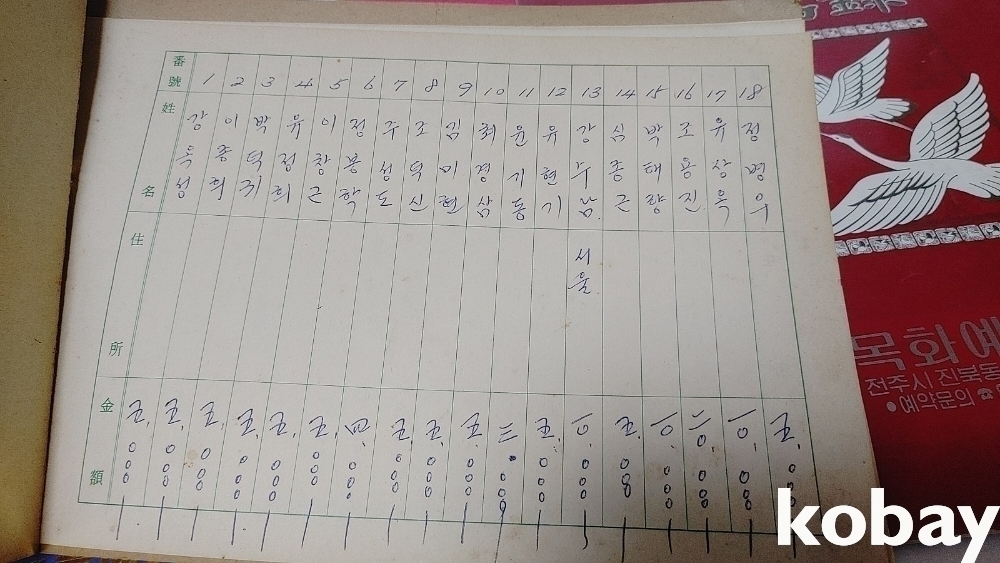 番號
姓名
住所
金額
1 강옥성 五,000
2 이종희 五,000
3 박덕 五,000
4 유정희 五,000
5 이창근 五,000
6 정봉학 五,000
7 주성도 四,000
8 조덕신 五,000
9 김미현 五,000
10 최경삼 五,000
11 윤기동 三,000
12 유현기 五,000
13 강수남 서울 一0,000
14 심종근 五,000
15 박태량 一0,000
16 조용진 二0,000
17 유상옥 一0,000
18 정병우 五,000
목화예
전주시 진북동
●예약문의 ☎
kobay